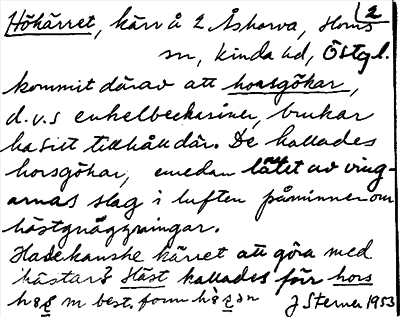 Hökärret, kärr å 2 Åskorva, Horns 2
sn, Kinda hd, Östgl.
kommit därav att horsgökar,
d.v.s enkelbeckasiner, brukar
ha sitt tillhåll där. De kallades
horsgökar, emedan lätet av ving-
arnas slag i luften påminner om
hästgnäggningar.
Hade kanske kärret att göra med
hästar? Häst kallades för hors
m best. form
J Sterner 1953